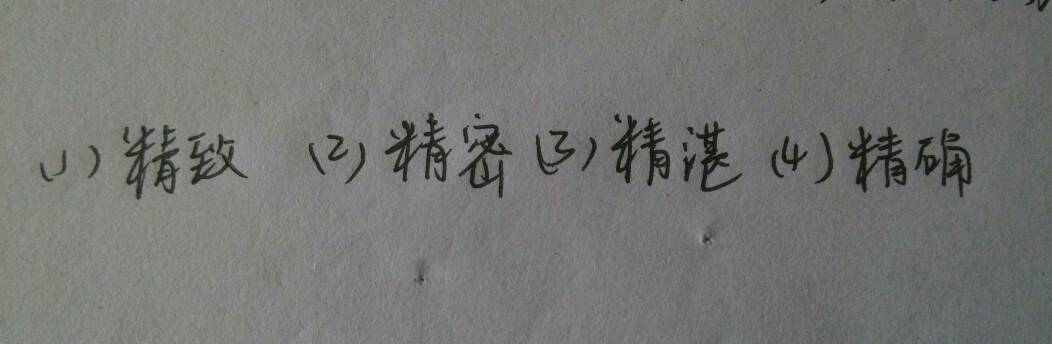 (1) 精致 (2) 精密 (3) 精湛 (4) 精确